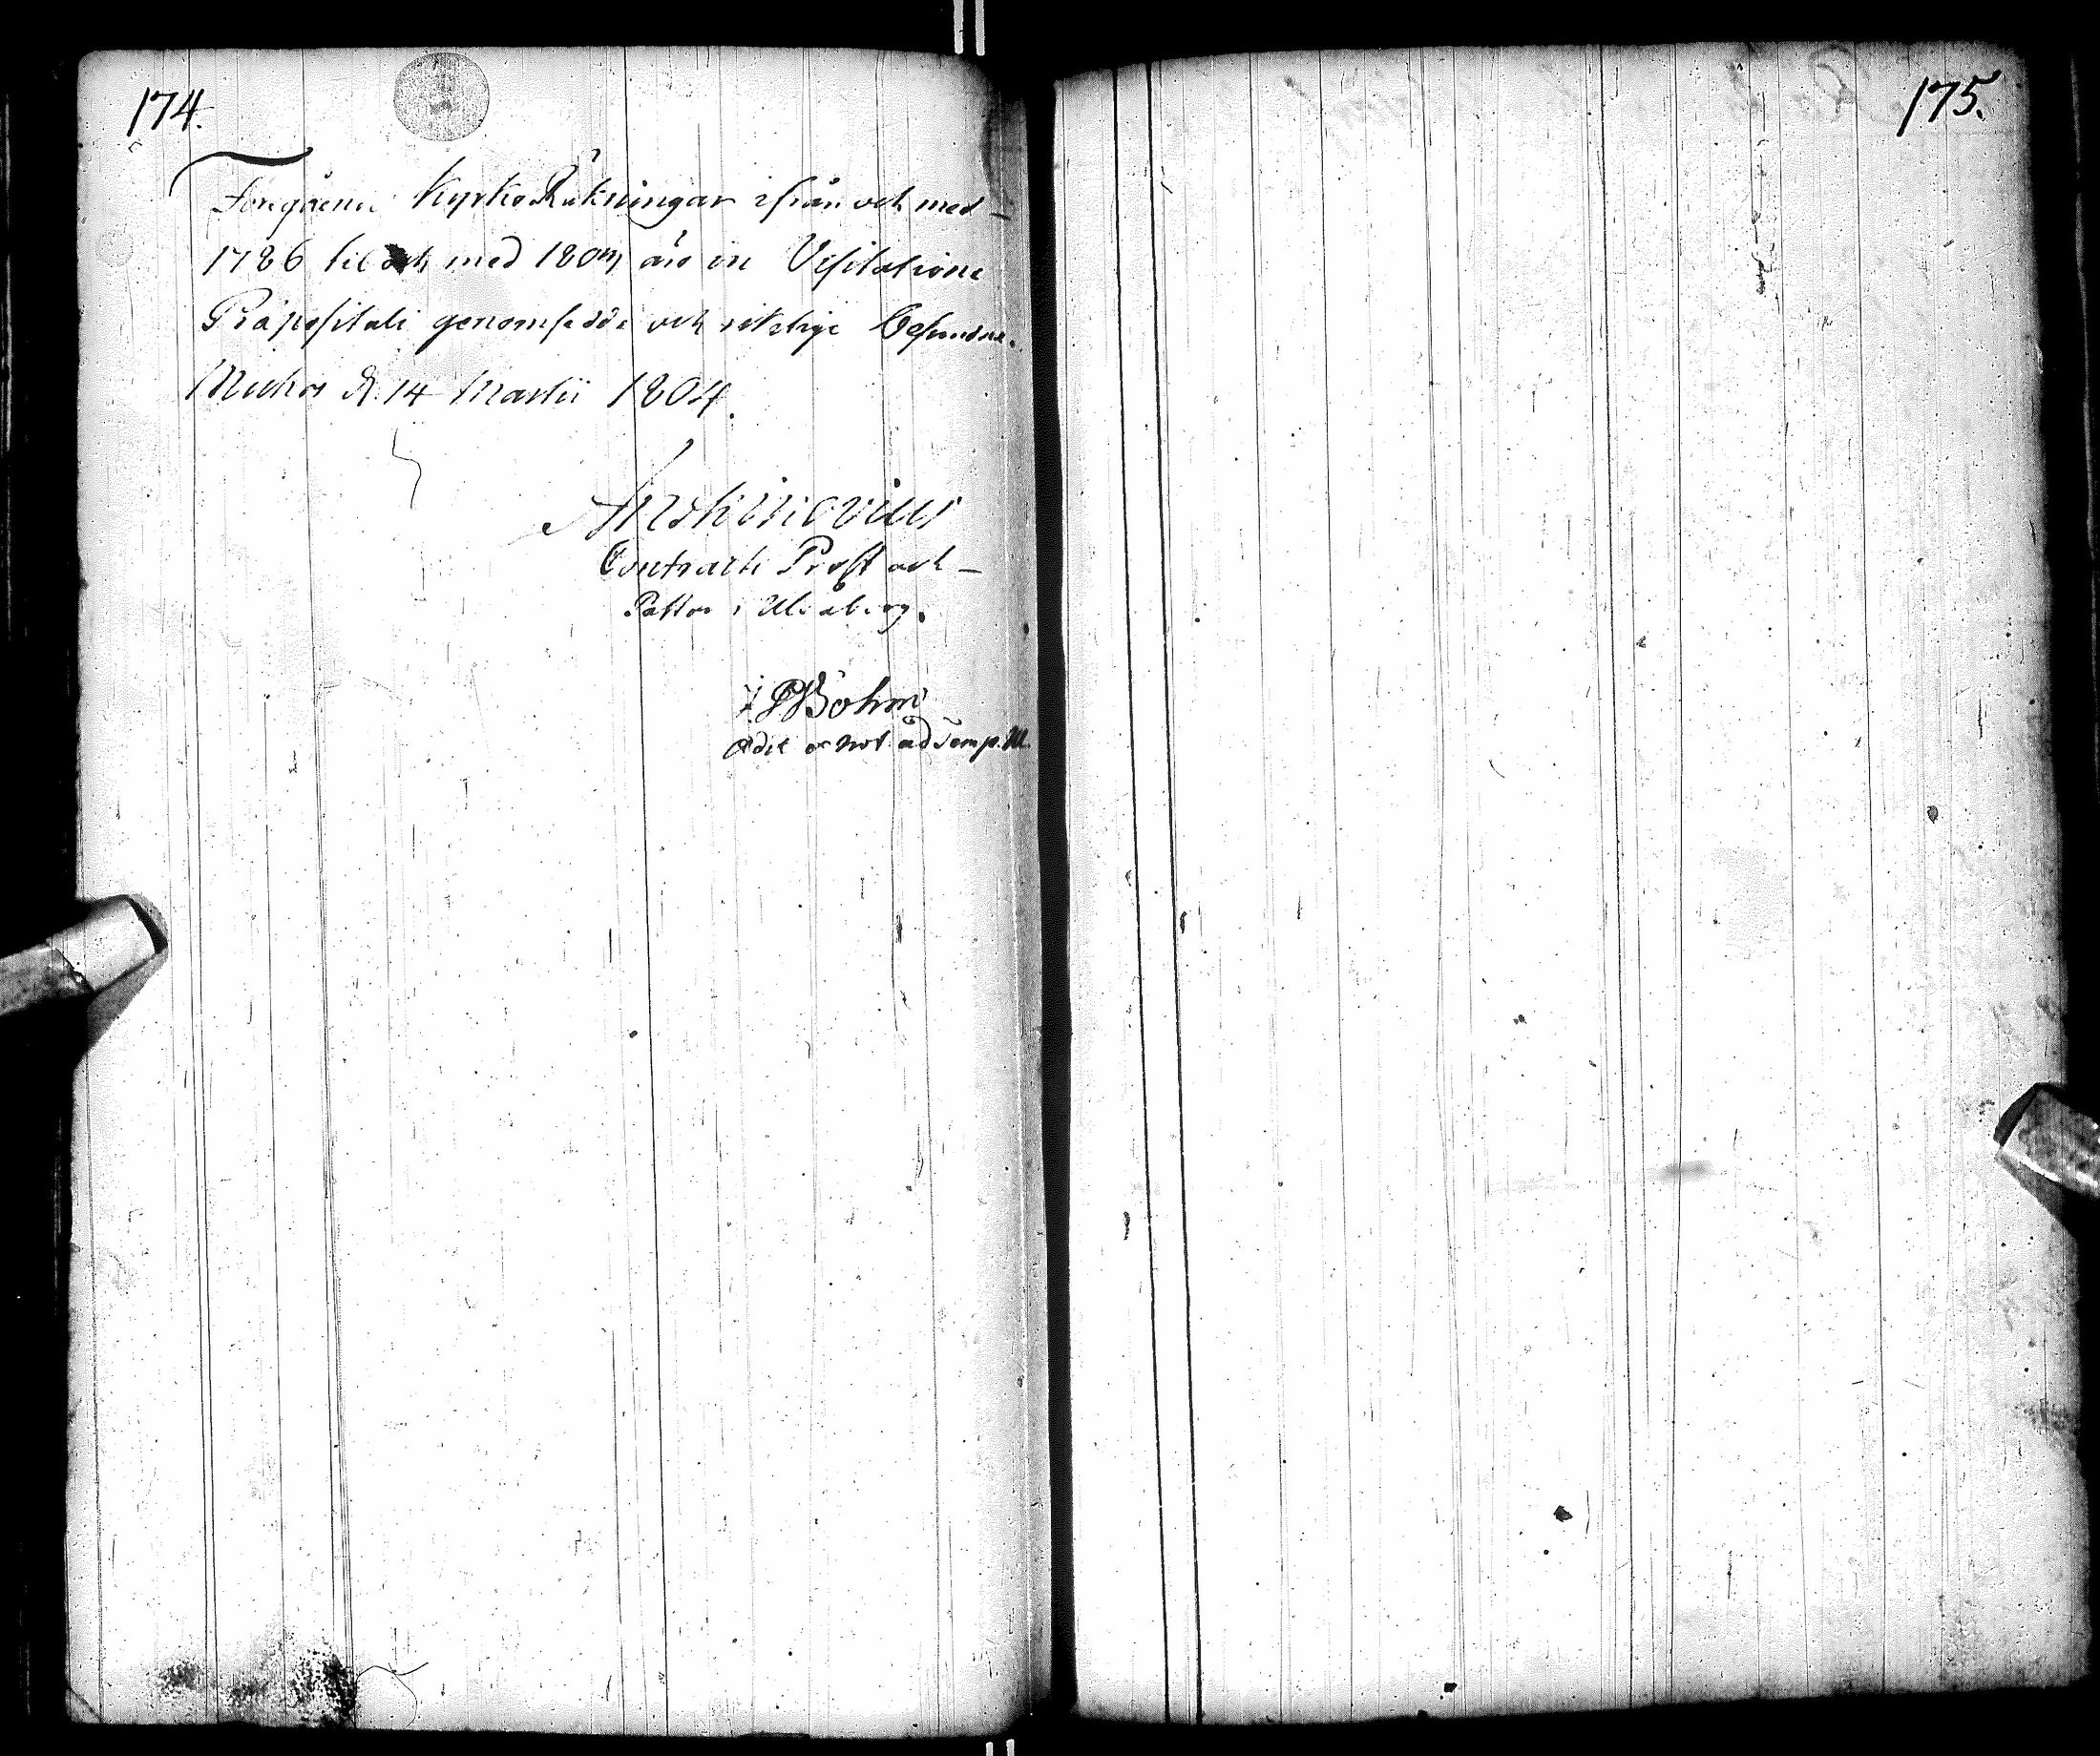 174.
Föregåene KyrkoRäkningar ifrån och med
1786 til och med 1803 års in Visitatione
Præpositali genomsedde och riktige befundne.
Muhos d. 14 Martii 1804.
Contracts Prost och
Pastor i Uleåborg.
Böhm
Adj. et Not. ad Temp. M.
175.